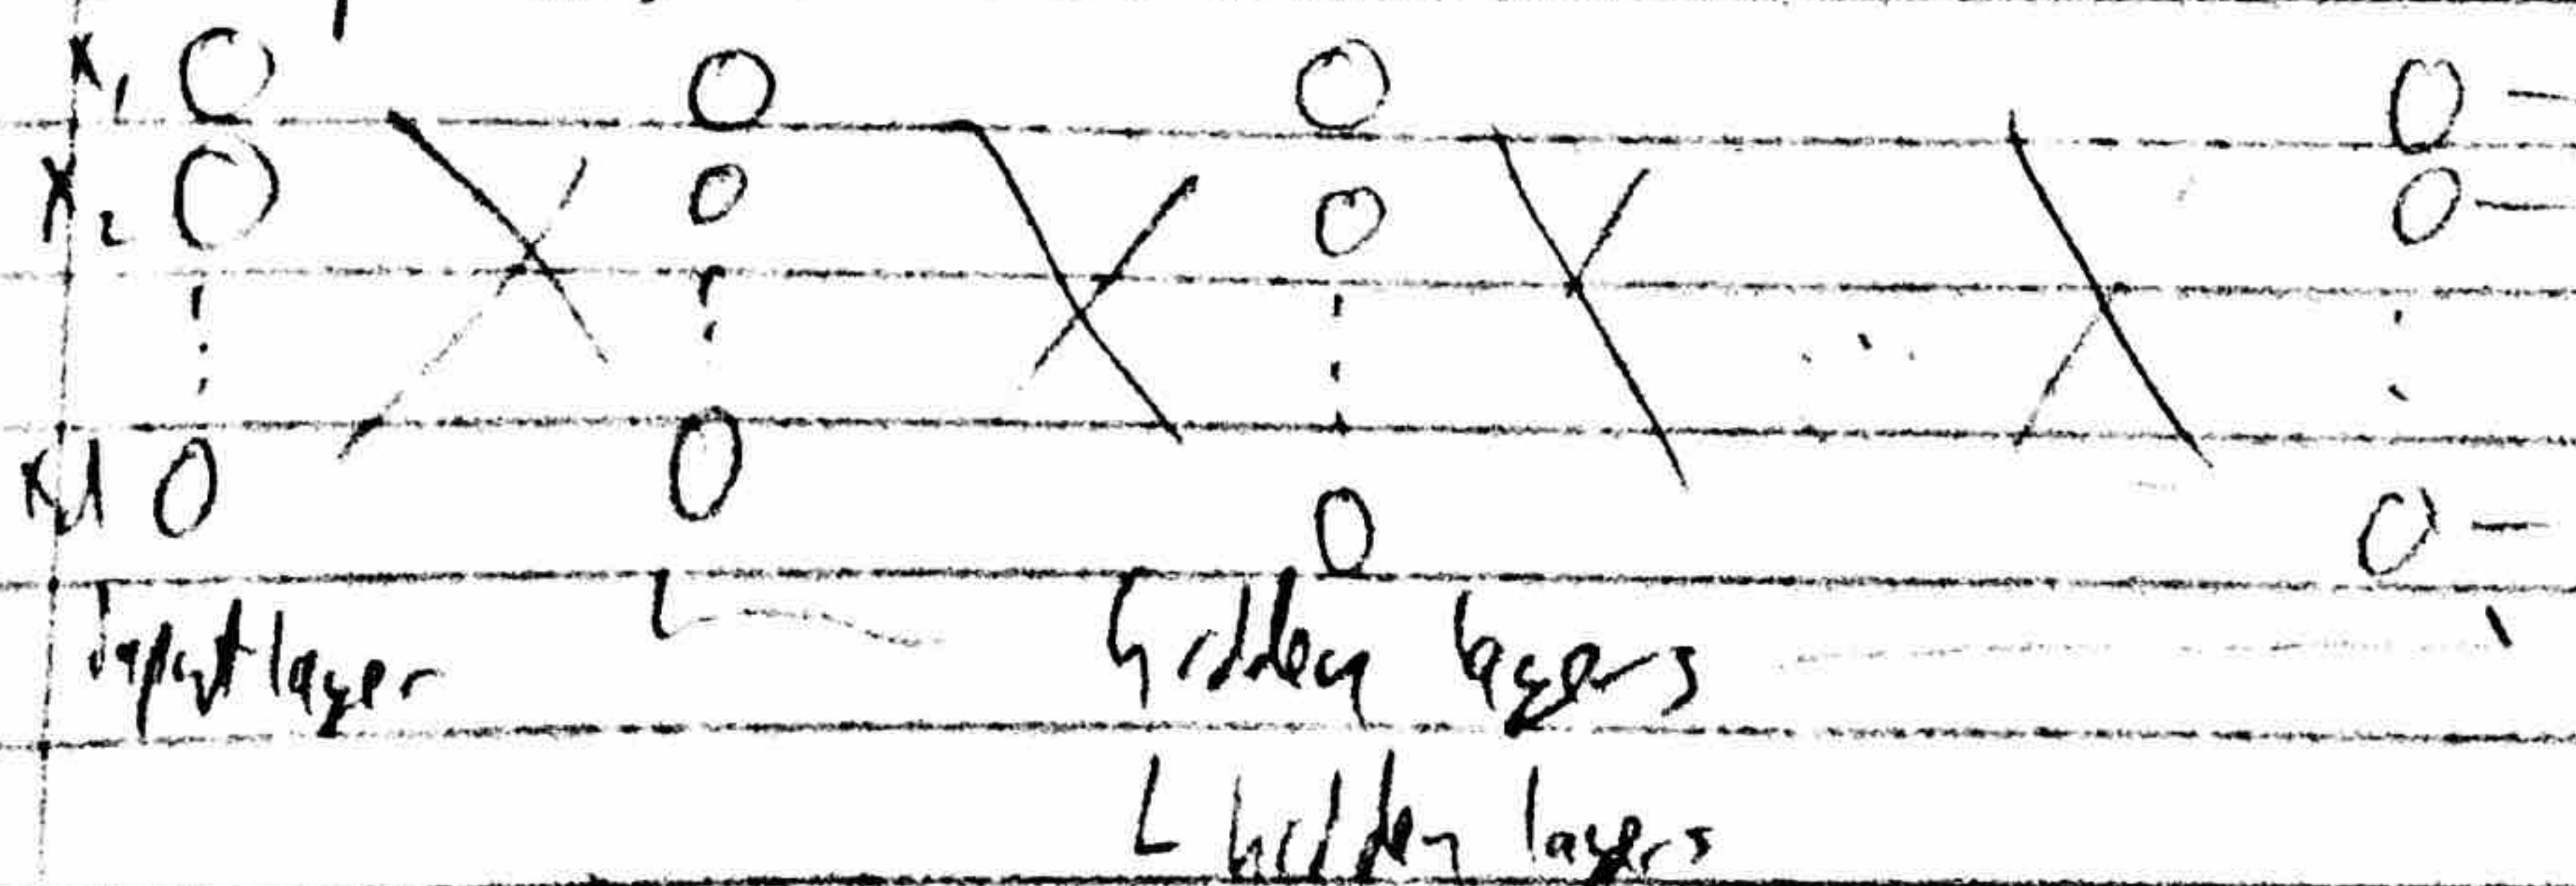 x₁
x₂
xd
Input layer
hidden layers
L hidden layers